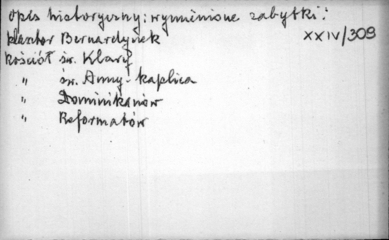 opis historyczny: wymienione zabytki:
klasztor Bernardynek
XXIV/309
kościół św. Klary
„ św. Anny - kaplica
„ Dominikanów
„ Reformatów